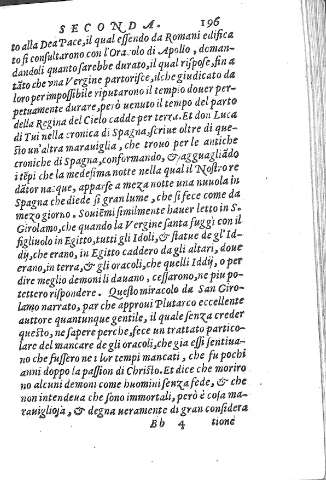 SECONDA. 196
to alla Dea Pace, il qual essendo da Romani edifica
to si consultarono con l'Oracolo di Apollo, doman-
dandoli quanto sarebbe durato, il qual rispose, fin a
tãto che vna Vergine partorisse, il che giudicato da
loro per impossibile riputarono il tempio douer per-
petuamente durare, però uenuto il tempo del parto
della Regina del Cielo cadde per terra. Et don Luca
di Tui nella cronica di Spagna, scriue oltre di que-
sto un'altra marauiglia, che trouo per le antiche
croniche di Spagna, conformando, & agguagliãdo
i tẽpi che la medesima notte nella qual il Nostro re
dător nacque, apparse a meza notte una nuuola in
Spagna che diede sì gran lume, che si fece come da
mezo giorno. Souiẽmi similmente hauer letto in S.
Girolamo, che quando la Vergine santa fuggì con il
figliuolo in Egitto, tutti gli Idoli, & statue de gl'Id-
dij, che erano, in Egitto caddero da gli altari, doue
erano, in terra, & gli oracoli, che quelli Iddij, o per
dire meglio demoni li dauano, cessarono, ne piu po-
tettero rispondere. Questo miracolo da San Giro-
lamo narrato, par che approui Plutarco eccellente
auttore quantunque gentile, il quale senza creder
questo, ne sapere perche, fece un trattato partico-
lare del mancare de gli oracoli, che gia essi sentiua-
no che fussero ne i lor tempi mancati, che fu pochi
anni doppo la passion di Christo. Et dice che moriro
no alcuni demoni come huomini senza fede, & che
non intendeua che sono immortali, però è cosa ma-
rauigliosa, & degna ueramente di gran considera
Bb 4 tione